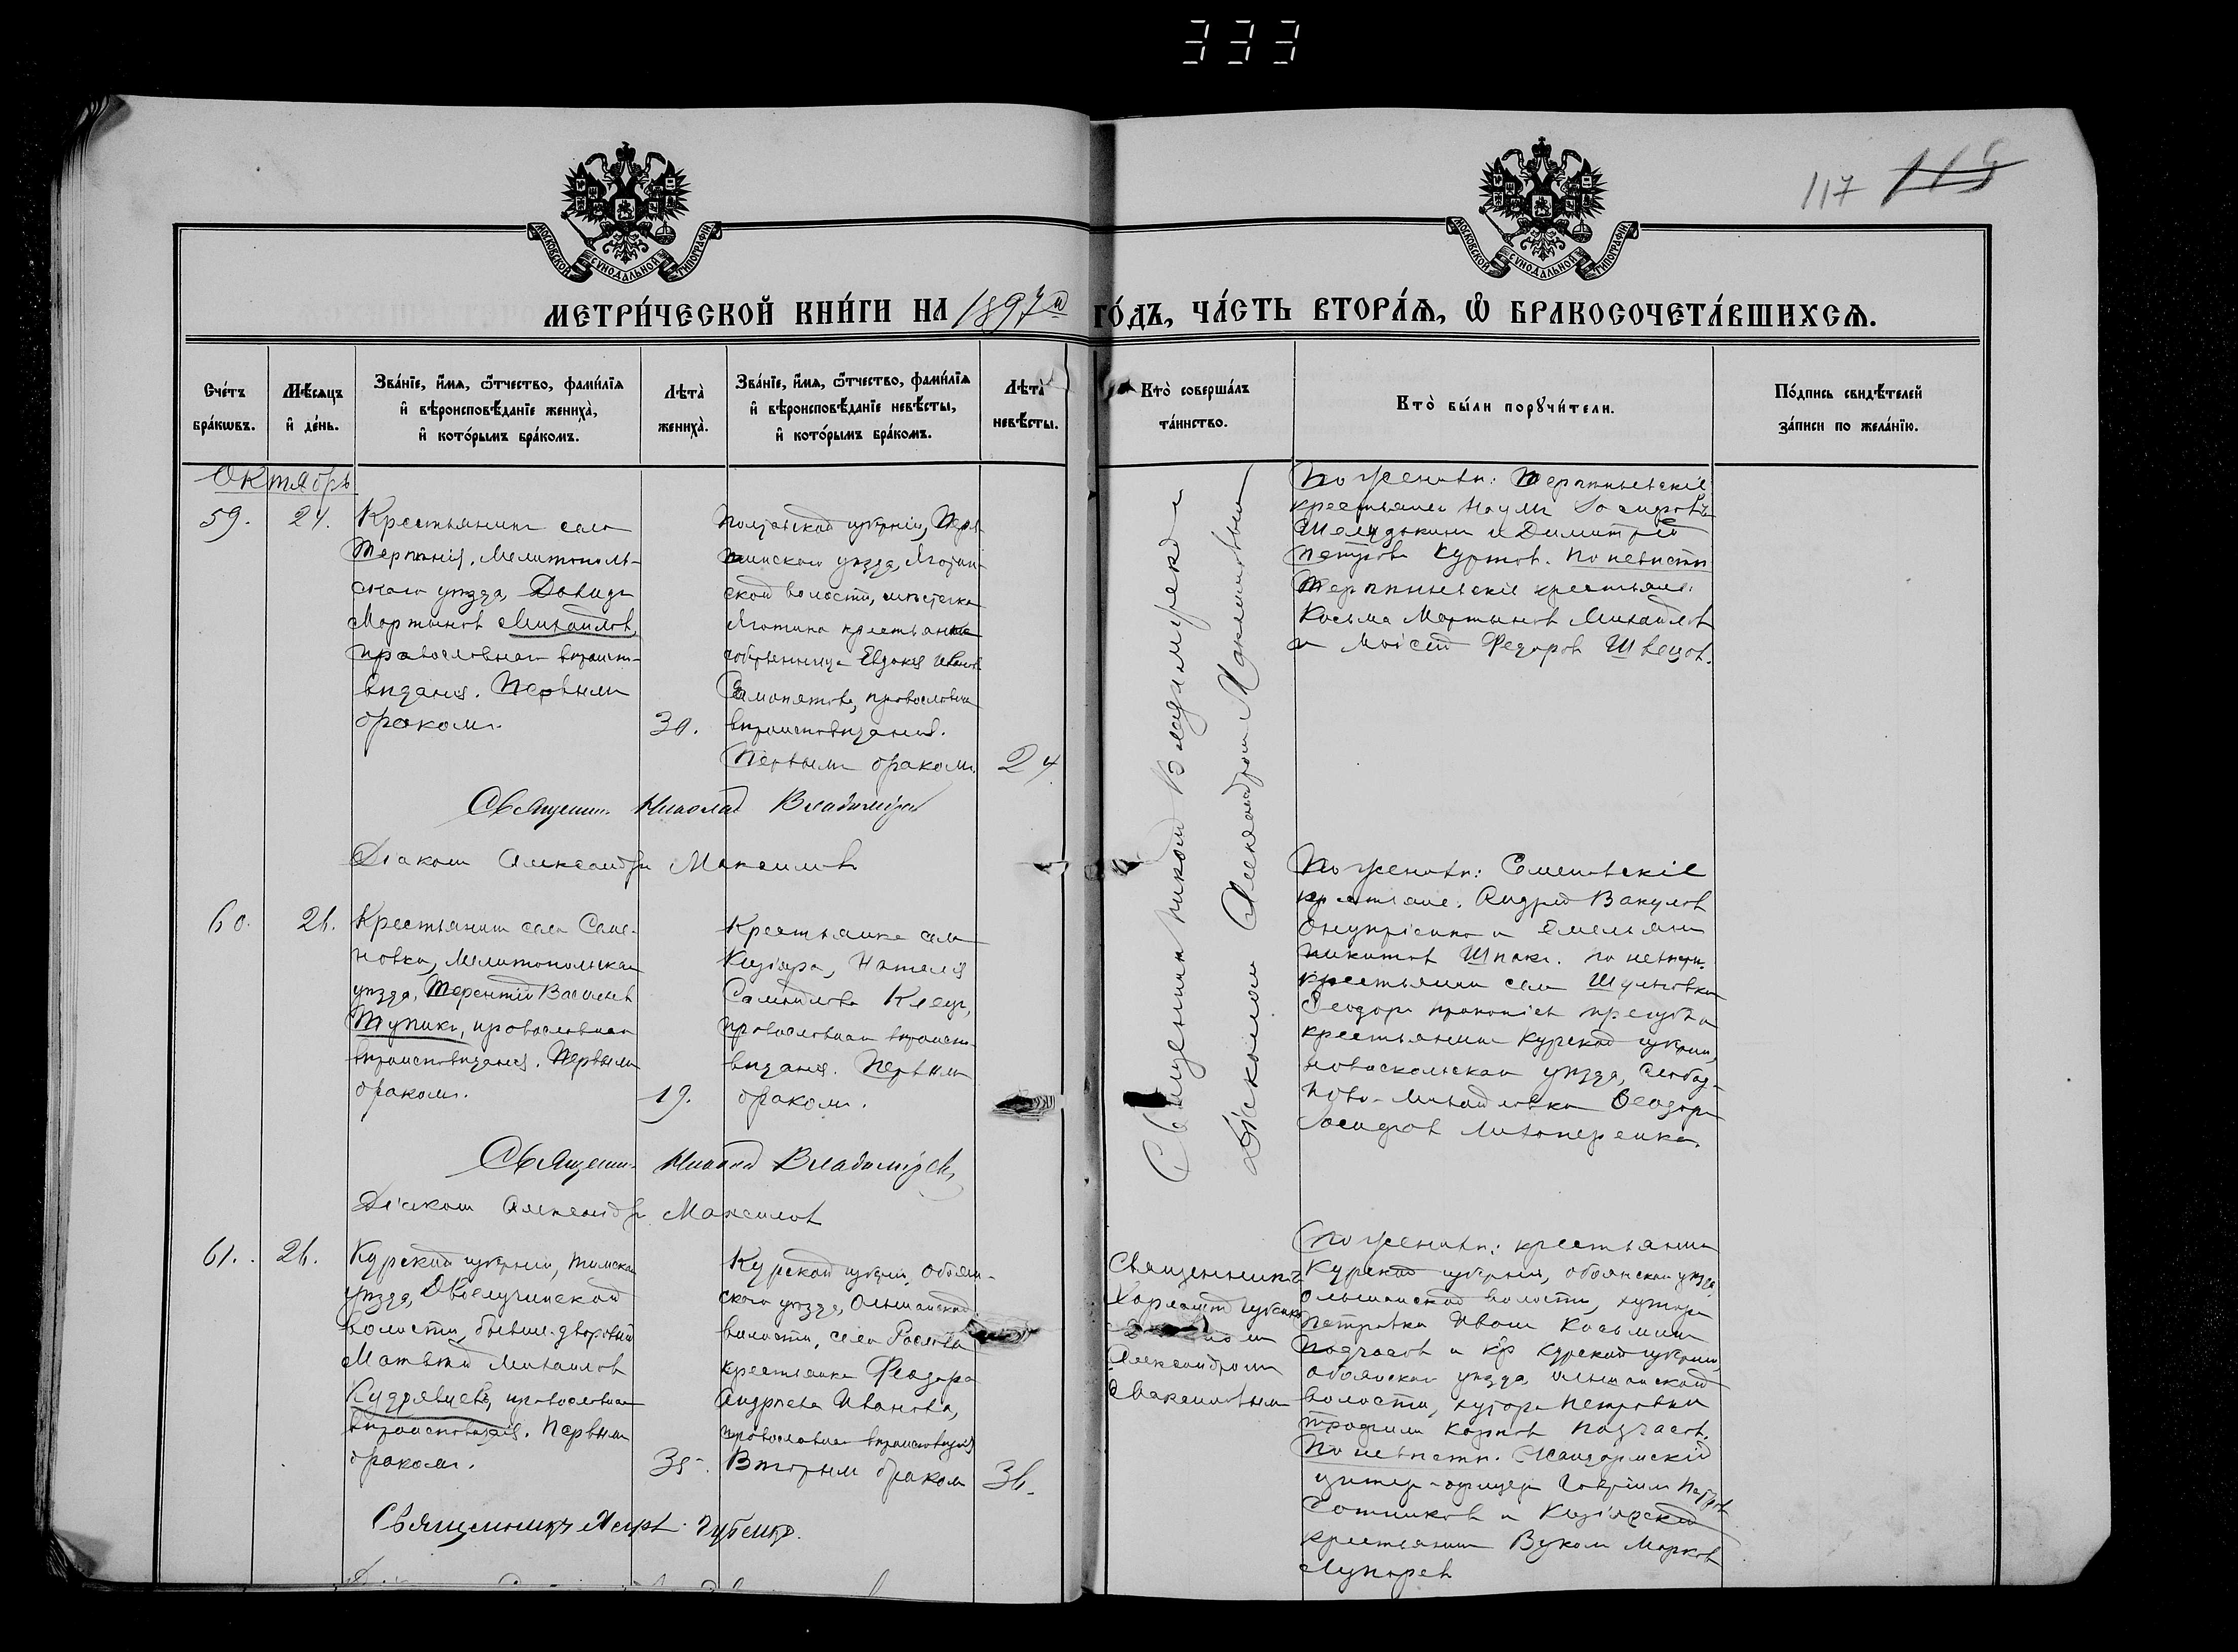 333
117 115
МОСКОВСКОЙ СУНОДАЛЬНОЙ ТИПОГРАФІИ
МОСКОВСКОЙ СУНОДАЛЬНОЙ ТИПОГРАФІИ
МЕТРИ́ЧЕСКОЙ КНИ́ГИ НА 1897й ГО́ДЪ, ЧА́СТЬ ВТОРА́Ѧ, Ѡ҆ БРАКОСОЧЕТА́ВШИХСѦ.
Сче́тъ
бра́кѡвъ.
Мѣ́сяцъ
и҆ де́нь.
Зва́нїе, и҆́мѧ, ѻ҆́тчество, фами́лїѧ
и҆ вѣроисповѣ́данїе жениха̀,
и҆ кото́рымъ бра́комъ.
Лѣта̀
жениха̀.
Зва́нїе, и҆́мѧ, ѻ҆́тчество, фами́лїѧ
и҆ вѣроисповѣ́данїе невѣ́сты,
и҆ кото́рымъ бра́комъ.
Лѣта̀
невѣ́сты.
Кто̀ соверша́лъ
та́инство.
Кто̀ бы́ли порꙋчи́тели.
По́дпись свидѣ́телей
за́писи по жела́нїю.
Октябрь
59.
24.
Крестьянинъ села
Терпѣнія, Мелитополь-
скаго уѣзда, Давидъ
Мартыновъ Михайловъ,
православнаго вѣроиспо-
вѣданія. Первымъ
бракомъ.
30.
Полтавской губерніи,
уѣзда, Яготин-
ской волости, мѣстечка
Яготина крестьянка
Евдокія Иванова
православнаго
вѣроисповѣданія.
Первымъ бракомъ.
24
Священникомъ Владимірскимъ
Діакономъ Александромъ Максимовымъ
По женихѣ: Терпѣньевскіе
крестьяне Наумъ
и Димитрій
Петровъ Куртовъ. По невѣстѣ
Терпѣньевскіе крестьяне:
Косьма Мартыновъ Михайловъ
и Моисей Федоровъ Швецовъ.
Священникъ Николай
Діаконъ Александръ
60.
26.
Крестьянинъ села Семе-
новки, Мелитопольскаго
уѣзда, Терентій Васильевъ
Тупикъ, православнаго
вѣроисповѣданія. Первымъ
бракомъ.
19.
Крестьянка села
Кизіяра, Наталія
Самойлова
православнаго вѣроиспо-
вѣданія. Первымъ
бракомъ.
По женихѣ: Семеновскіе
крестьяне: Андрей Вакуловъ
Онупріенко и Емельянъ
Никитовъ Шпакъ. По невѣстѣ:
крестьянинъ села Шульговки
Феодоръ Прокопіевъ
крестьянинъ Курской губерніи,
Новооскольскаго уѣзда, слобод.
Ново-Михайловки Феодоръ
Священникъ Николай
Діаконъ Александръ
61.
26.
Курской губерніи, Тимскаго
уѣзда,
волости, бывш. дворовый
Матвѣй Михайловъ
Кудрявцевъ, православнаго
вѣроисповѣданія. Первымъ
бракомъ.
35.
Курской губерніи, Обоян-
скаго уѣзда, Ольшанской
волости, села
крестьянка Феодора
Андреева Иванова,
православнаго вѣроисповѣданія
Вторымъ бракомъ
36.
Священникъ
Харлампій Губенко
Александромъ
Максимовымъ
По женихѣ: крестьянинъ
Курской губерніи, Обоянскаго уѣзда,
Ольшанской волости, хутора
Петровки Иванъ Косьминъ
Подчасовъ и кр. Курской губерніи,
Обоянскаго уѣзда, Ольшанской
волости, хутора Петровки
Трофимъ Карповъ Подчасовъ.
По невѣстѣ: Жандармскій
унтер-офицеръ Гавріилъ Петровъ
Сотниковъ и Кизіярскій
крестьянинъ Вуколъ Марковъ
Лупырев
Священникъ Харл. Губенко.